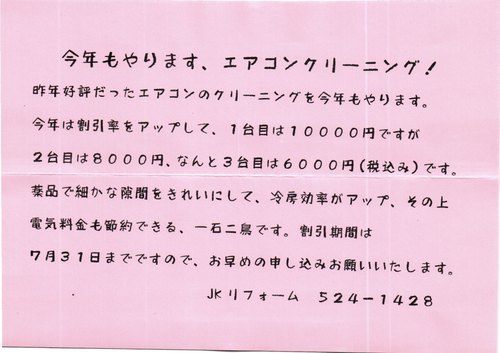 今年もやります、エアコンクリーニング！
昨年好評だったエアコンのクリーニングを今年もやります。
今年は割引率をアップして、１台目は１００００円ですが
２台目は８０００円、なんと３台目は６０００円（税込み）です。
薬品で細かな隙間をきれいにして、冷房効率がアップ、その上
電気料金も節約できる、一石二鳥です。割引期間は
７月３１日までですので、お早めの申し込みお願いいたします。
JKリフォーム　５２４－１４２８